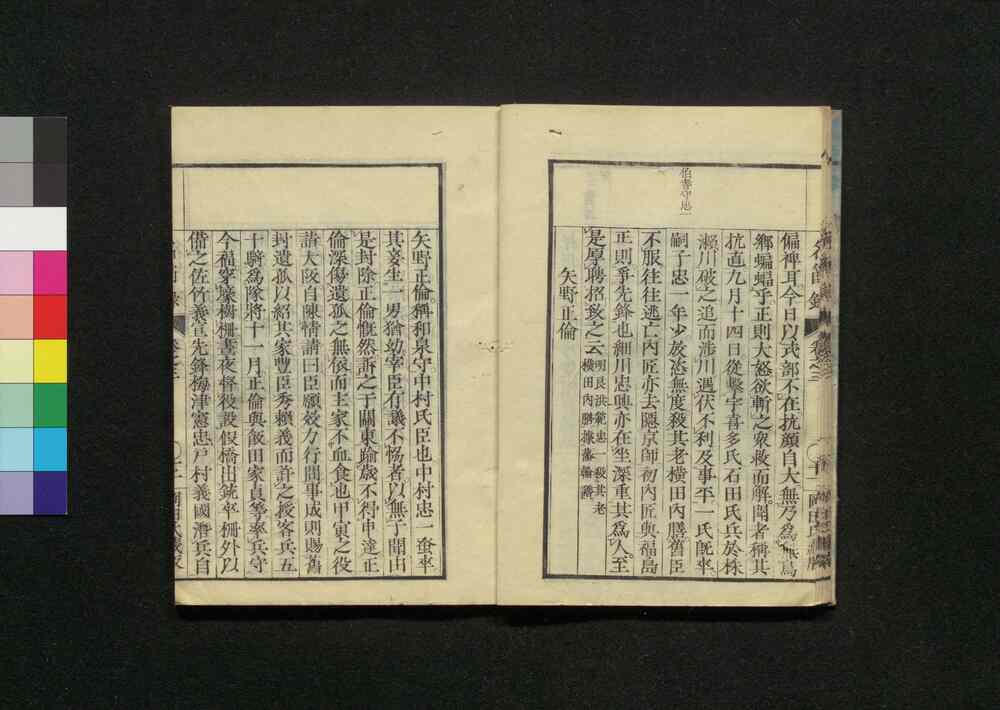 偏裨耳今日以式部不在抗顏自大無乃為無鳥
鄉蝙蝠乎正則大怒欲斬之衆救而解聞者稱其
抗直九月十四日從擊宇喜多氏石田氏兵於株
瀨川破之追而涉川遇伏不利及事平一氏既卒
伯耆守忠一
嗣子忠一年少放恣無度殺其老横田內膳舊臣
不服往往逃亡內匠亦去隱京師初內匠與福島
正則爭先鋒也細川忠興亦在坐深重其為人至
是厚聘招致之云
明良洪範忠一殺其老
橫田內膳據藩翰譜
矢野正倫
矢野正倫稱和泉守中村氏臣也中村忠一蚤卒
其妾生一男猶幼宰臣有議不恊者以無子聞由
是封除正倫慨然訴之于關東踰歲不得申達正
倫深傷遺孤之無依而主家不血食也甲寅之役
詣大阪自陳情請曰臣願效力行間事成則賜舊
封遺孤以紹其家豐臣秀賴義而許之授客兵五
十騎為隊將十一月正倫與飯田家貞等率兵守
今福穿壕樹柵晝夜督役設假橋出銃卒柵外以
備之佐竹義宣先鋒梅津憲忠戶村義國潛兵自